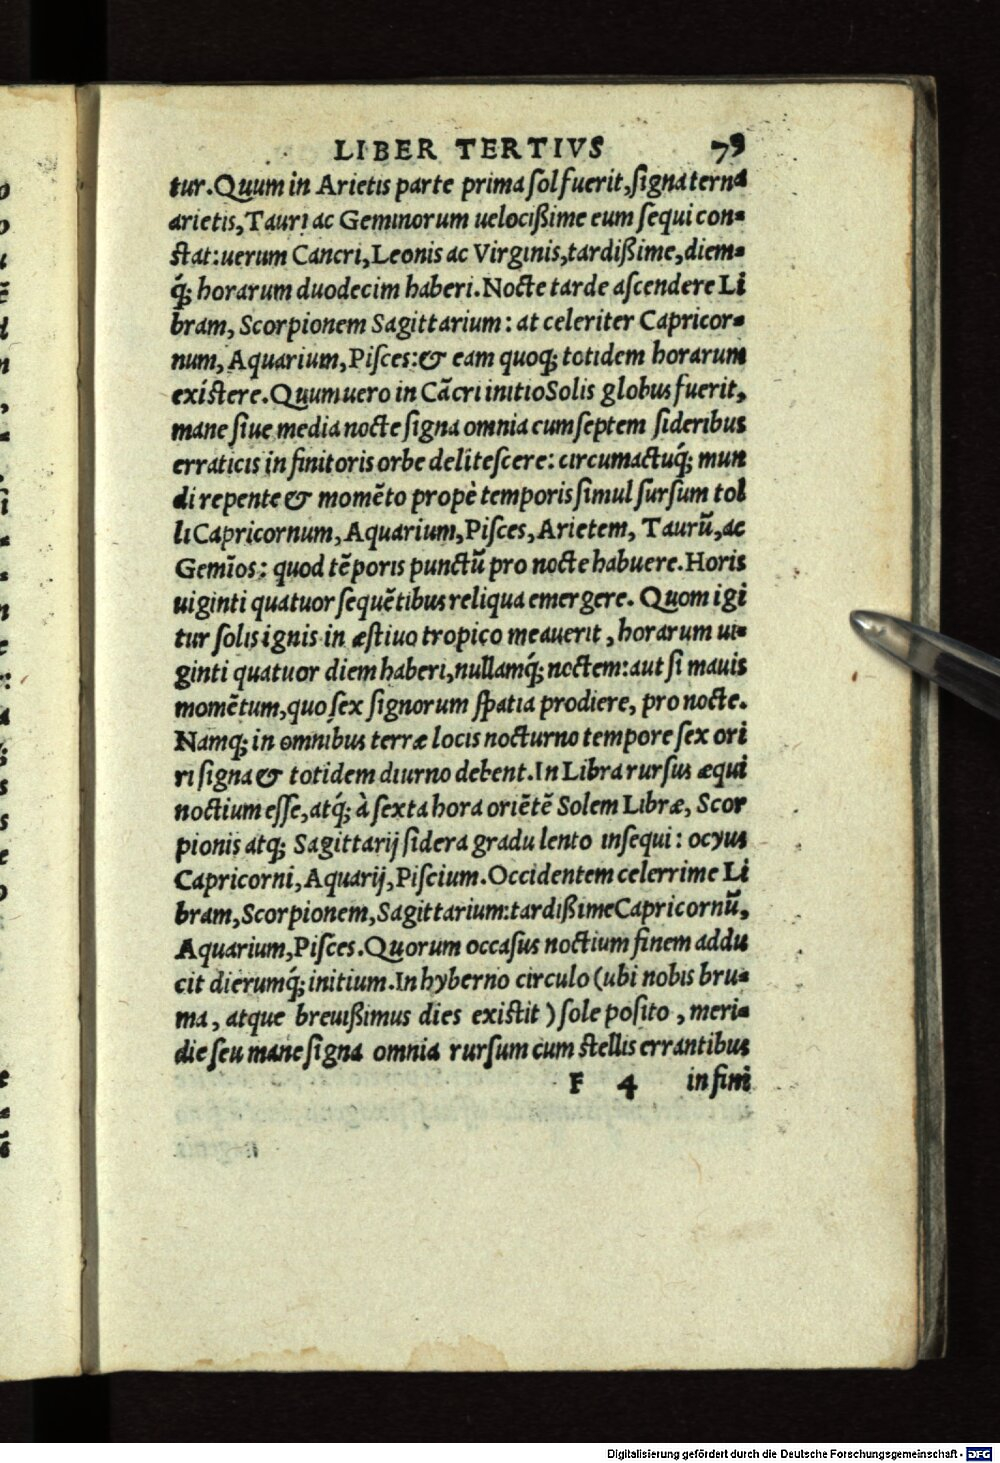 LIBER TERTIVS 79
tur. Quum in Arietis parte prima ſol fuerit, ſigna terna
arietis, Tauri ac Geminorum uelocißime eum ſequi con-
ſtat: uerum Cancri, Leonis ac Virginis, tardißime, diem-
q́; horarum duodecim haberi. Nocte tarde aſcendere Li
bram, Scorpionem Sagittarium: at celeriter Capricor-
num, Aquarium, Piſces: & eam quoq; totidem horarum
exiſtere. Quum uero in Cãcri initio Solis globus fuerit,
mane ſiue media nocte ſigna omnia cum ſeptem ſideribus
erraticis in finitoris orbe deliteſcere: circumactuq́; mun
di repente & momẽto propè temporis ſimul ſurſum tol
li Capricornum, Aquarium, Piſces, Arietem, Taurũ, ac
Gemĩos: quod tẽporis punctũ pro nocte habuere. Horis
uiginti quatuor ſequẽtibus reliqua emergere. Quom igi
tur ſolis ignis in æſtiuo tropico meauerit, horarum ui-
ginti quatuor diem haberi, nullamq́; noctem: aut ſi mauis
momẽtum, quo ſex ſignorum ſpatia prodiere, pro nocte.
Namq; in omnibus terræ locis nocturno tempore ſex ori
ri ſigna & totidem diurno debent. In Libra rurſus æqui
noctium eſſe, atq́; à ſexta hora oriẽtẽ Solem Libræ, Scor
pionis atq; Sagittarij ſidera gradu lento inſequi: ocyus
Capricorni, Aquarij, Piſcium. Occidentem celerrime Li
bram, Scorpionem, Sagittarium: tardißime Capricornũ,
Aquarium, Piſces. Quorum occaſus noctium finem addu
cit dierumq́; initium. In hyberno circulo (ubi nobis bru-
ma, atque breuißimus dies exiſtit) ſole poſito, meri-
die ſeu mane ſigna omnia rurſum cum ſtellis errantibus
F 4 in fini
Digitalisierung gefördert durch die Deutsche Forschungsgemeinschaft - DFG